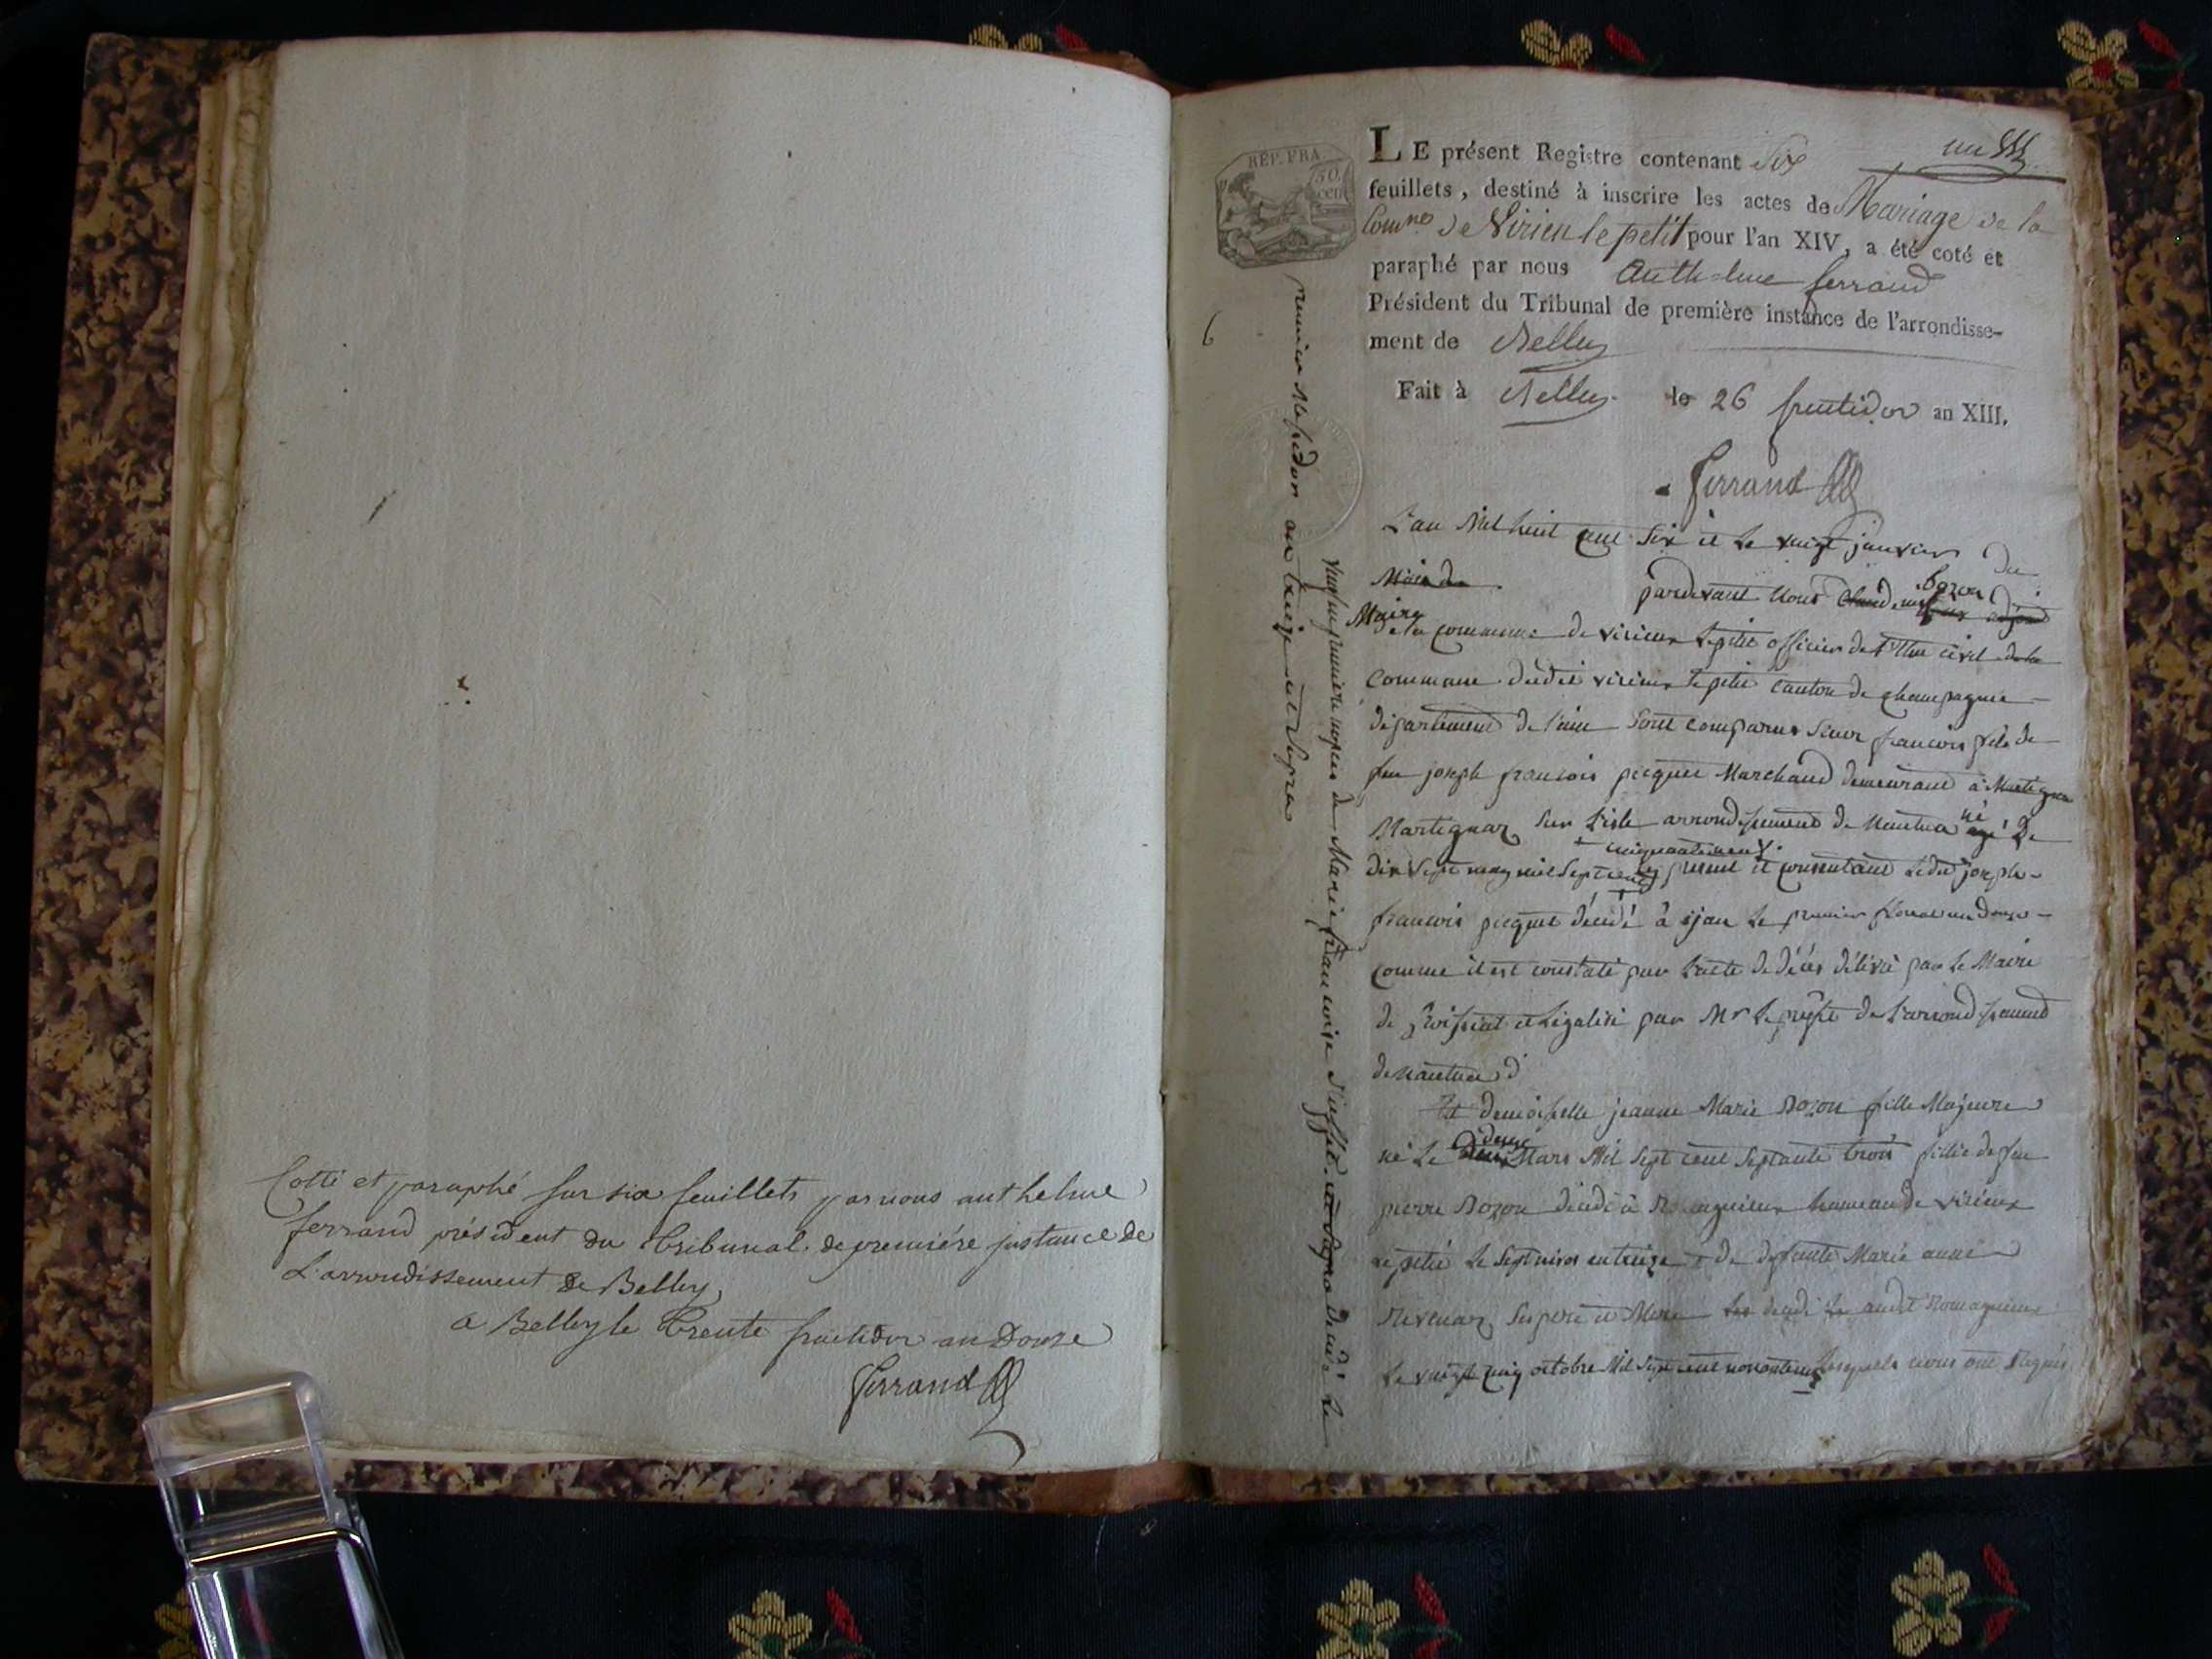 Cotté et paraphé sur six feuillets par nous anthelme
ferrand président du tribunal de premiére instance de
L'arrondissement de Belley
a Belley le trente fructidor an Douze
Ferrand
REP. FRA
50
cent
un
LE présent Registre contenant Six
feuillets, destiné à inscrire les actes de Mariage de la
Comne de Virieu le petit pour l'an XIV, a été coté et
paraphé par nous Anthelme ferrand
Président du Tribunal de première instance de l'arrondisse-
ment de Belley
Fait à Belley le 26 fructidor an XIII.
Ferrand
6
L'an Mil huit cent Six et le vingt janvier
pardevant Nous bozon
Maire
de la commune de virieux le petit officier de l'état civil de la
commune dudit virieux le petit canton de champagne
département de l'ain sont comparus sieur francois fils de
feu joseph francois picquet Marchand demeurant à
Martignaz sur l'isle arrondissement de Nantua né le
cinquante neuf
dix sept may mil sept cent présent et consentant ledit joseph
francois picquet décédé à ijean le premier floreal an douze
comme il est constaté par l'acte de décès délivré par le Maire
de Groissiat et Légalisé par Mr de l'arrondissement
de Nantua
Et demoiselle jeanne Marie Bozon fille Majeure
né le Mars Mil Sept cent Septante trois fille de feu
pierre Bozon décédé à Romagnieux hameau de virieux
le petit le Sept nivos an treize de defunte Marie anne
Ses pere et Mere audit Romagnieux
Le vingt cinq octobre Mil Sept cent lesquels nous ont requis
veuf en premiere nopces de Marie francoise décédé le
premier an treize